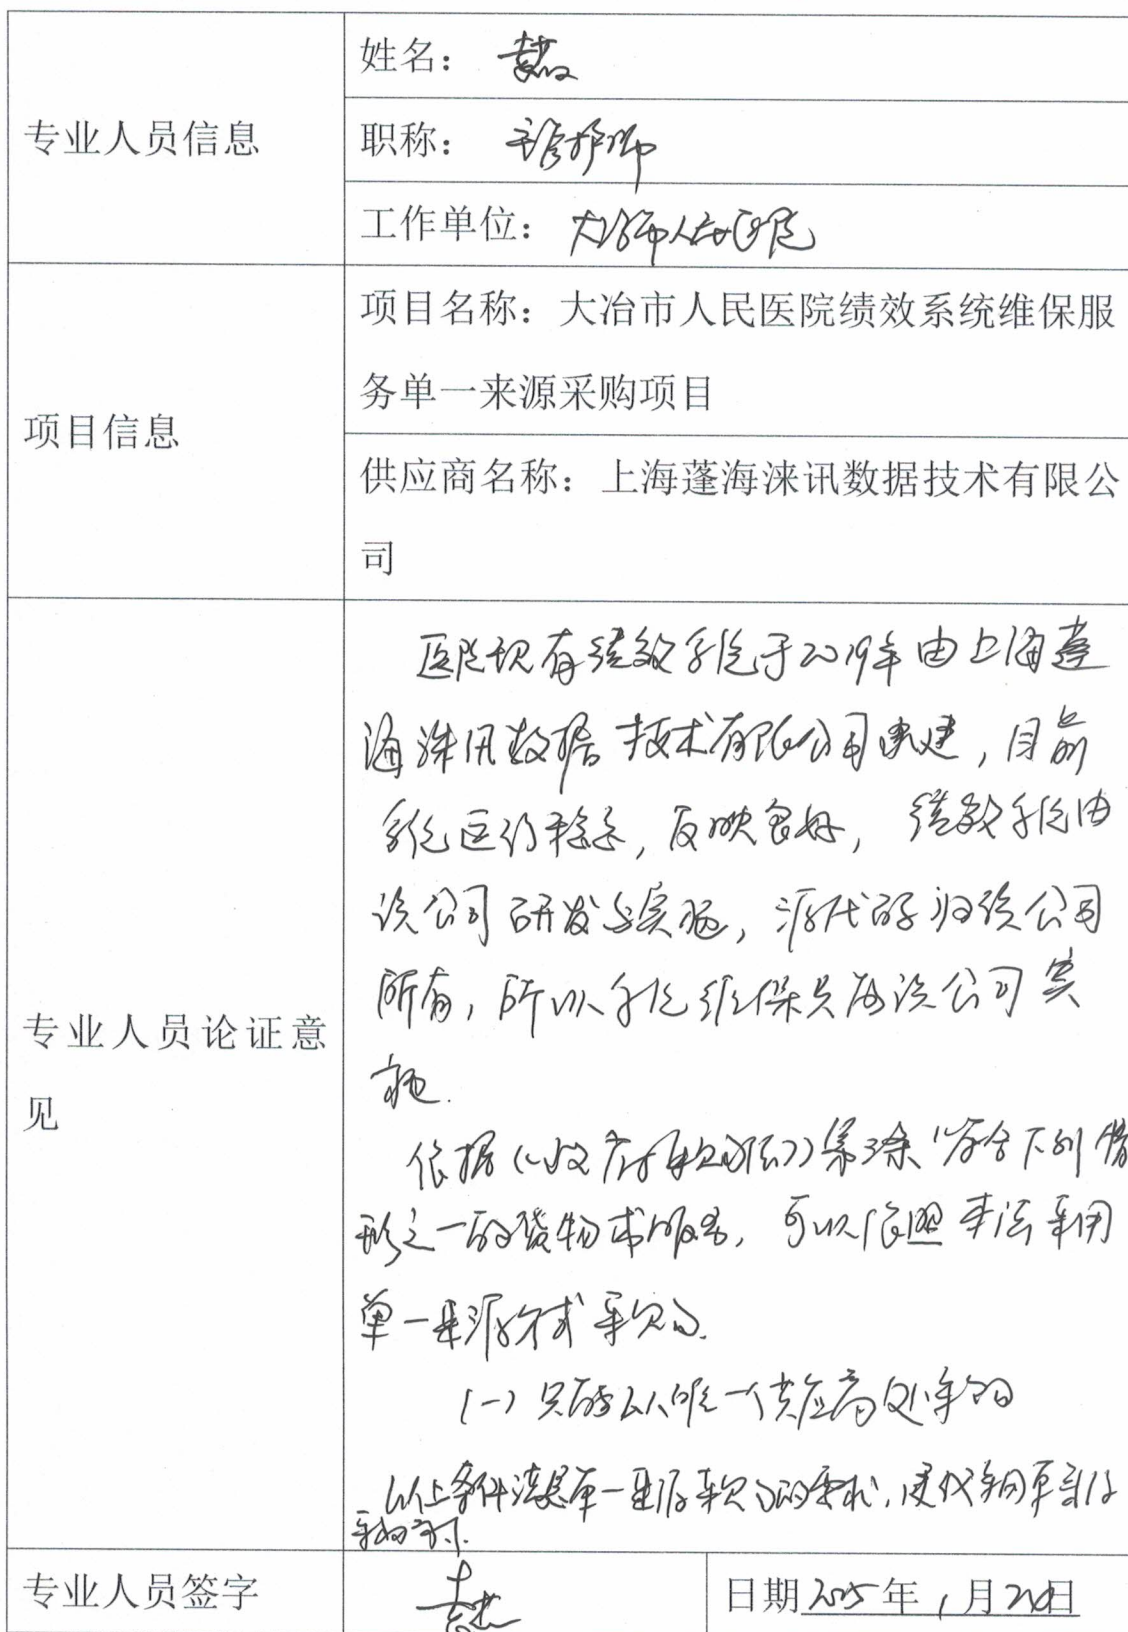 专业人员信息
姓名：
职称：主管护师
工作单位：大冶市人民医院
项目信息
项目名称：大冶市人民医院绩效系统维保服
务单一来源采购项目
供应商名称：上海蓬海涞讯数据技术有限公
司
专业人员论证意
见
医院现有绩效系统于2019年由上海蓬
海涞讯数据技术有限公司承建，目前
系统运行稳定，反映良好，绩效系统由
该公司研发与实施，源代码归该公司
所有，所以系统维保只能该公司实
施.
依据《政府采购法》第31条"符合下列情
形之一的货物或服务，可以依照本法采用
单一来源方式采购.
(一)只能从唯一供应商处采购的
以上条件满足单一来源采购的要求，建议采用单一来源
采购方式.
专业人员签字
日期2025年1月日